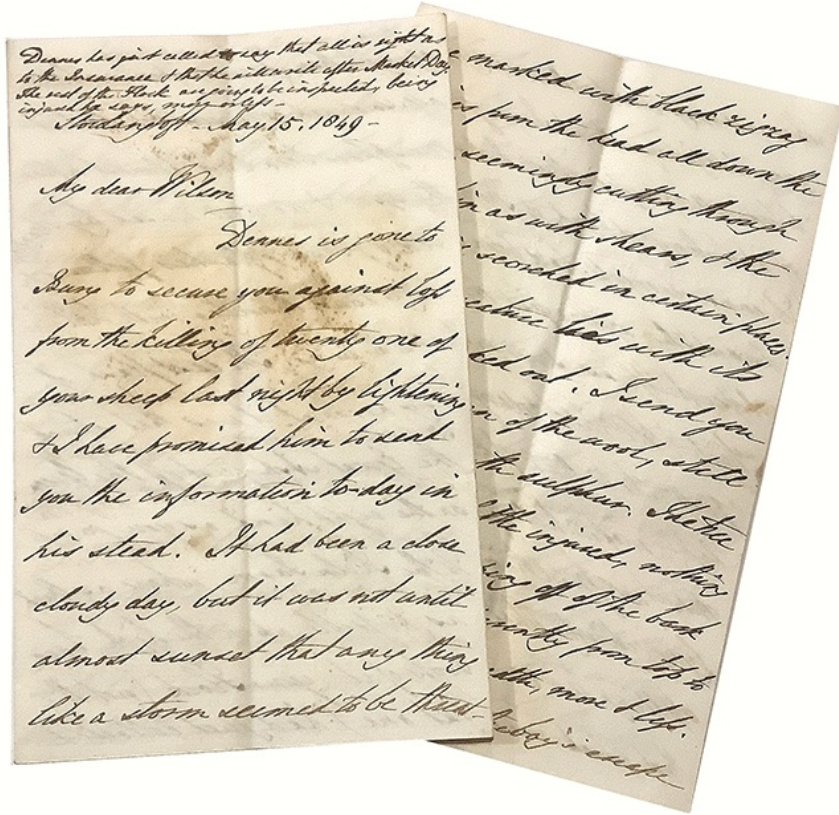 Dennes has just called to say that all is right as
to the Insurance & that he will write after Market Day.
The rest of the Flock are going to be inspected, being
injured he says, more or less -
Stowlangtoft - May 15. 1849 -
My dear Wilson
Dennes is gone to
Bury to secure you against loss
from the killing of twenty one of
your sheep last night by lightening
& I have promised him to send
you the information to-day in
his stead. It had been a close
cloudy day, but it was not until
almost sunset that any thing
like a storm seemed to be threat-
marked with black zigzag
from the head all down the
seemingly cutting through
as with shears, & the
scorched in certain places.
lies with its
out. I send you
of the wool, still
the sulphur. I have
the injured, nothing
off of the bark
from top to
more & less.
boy's escape